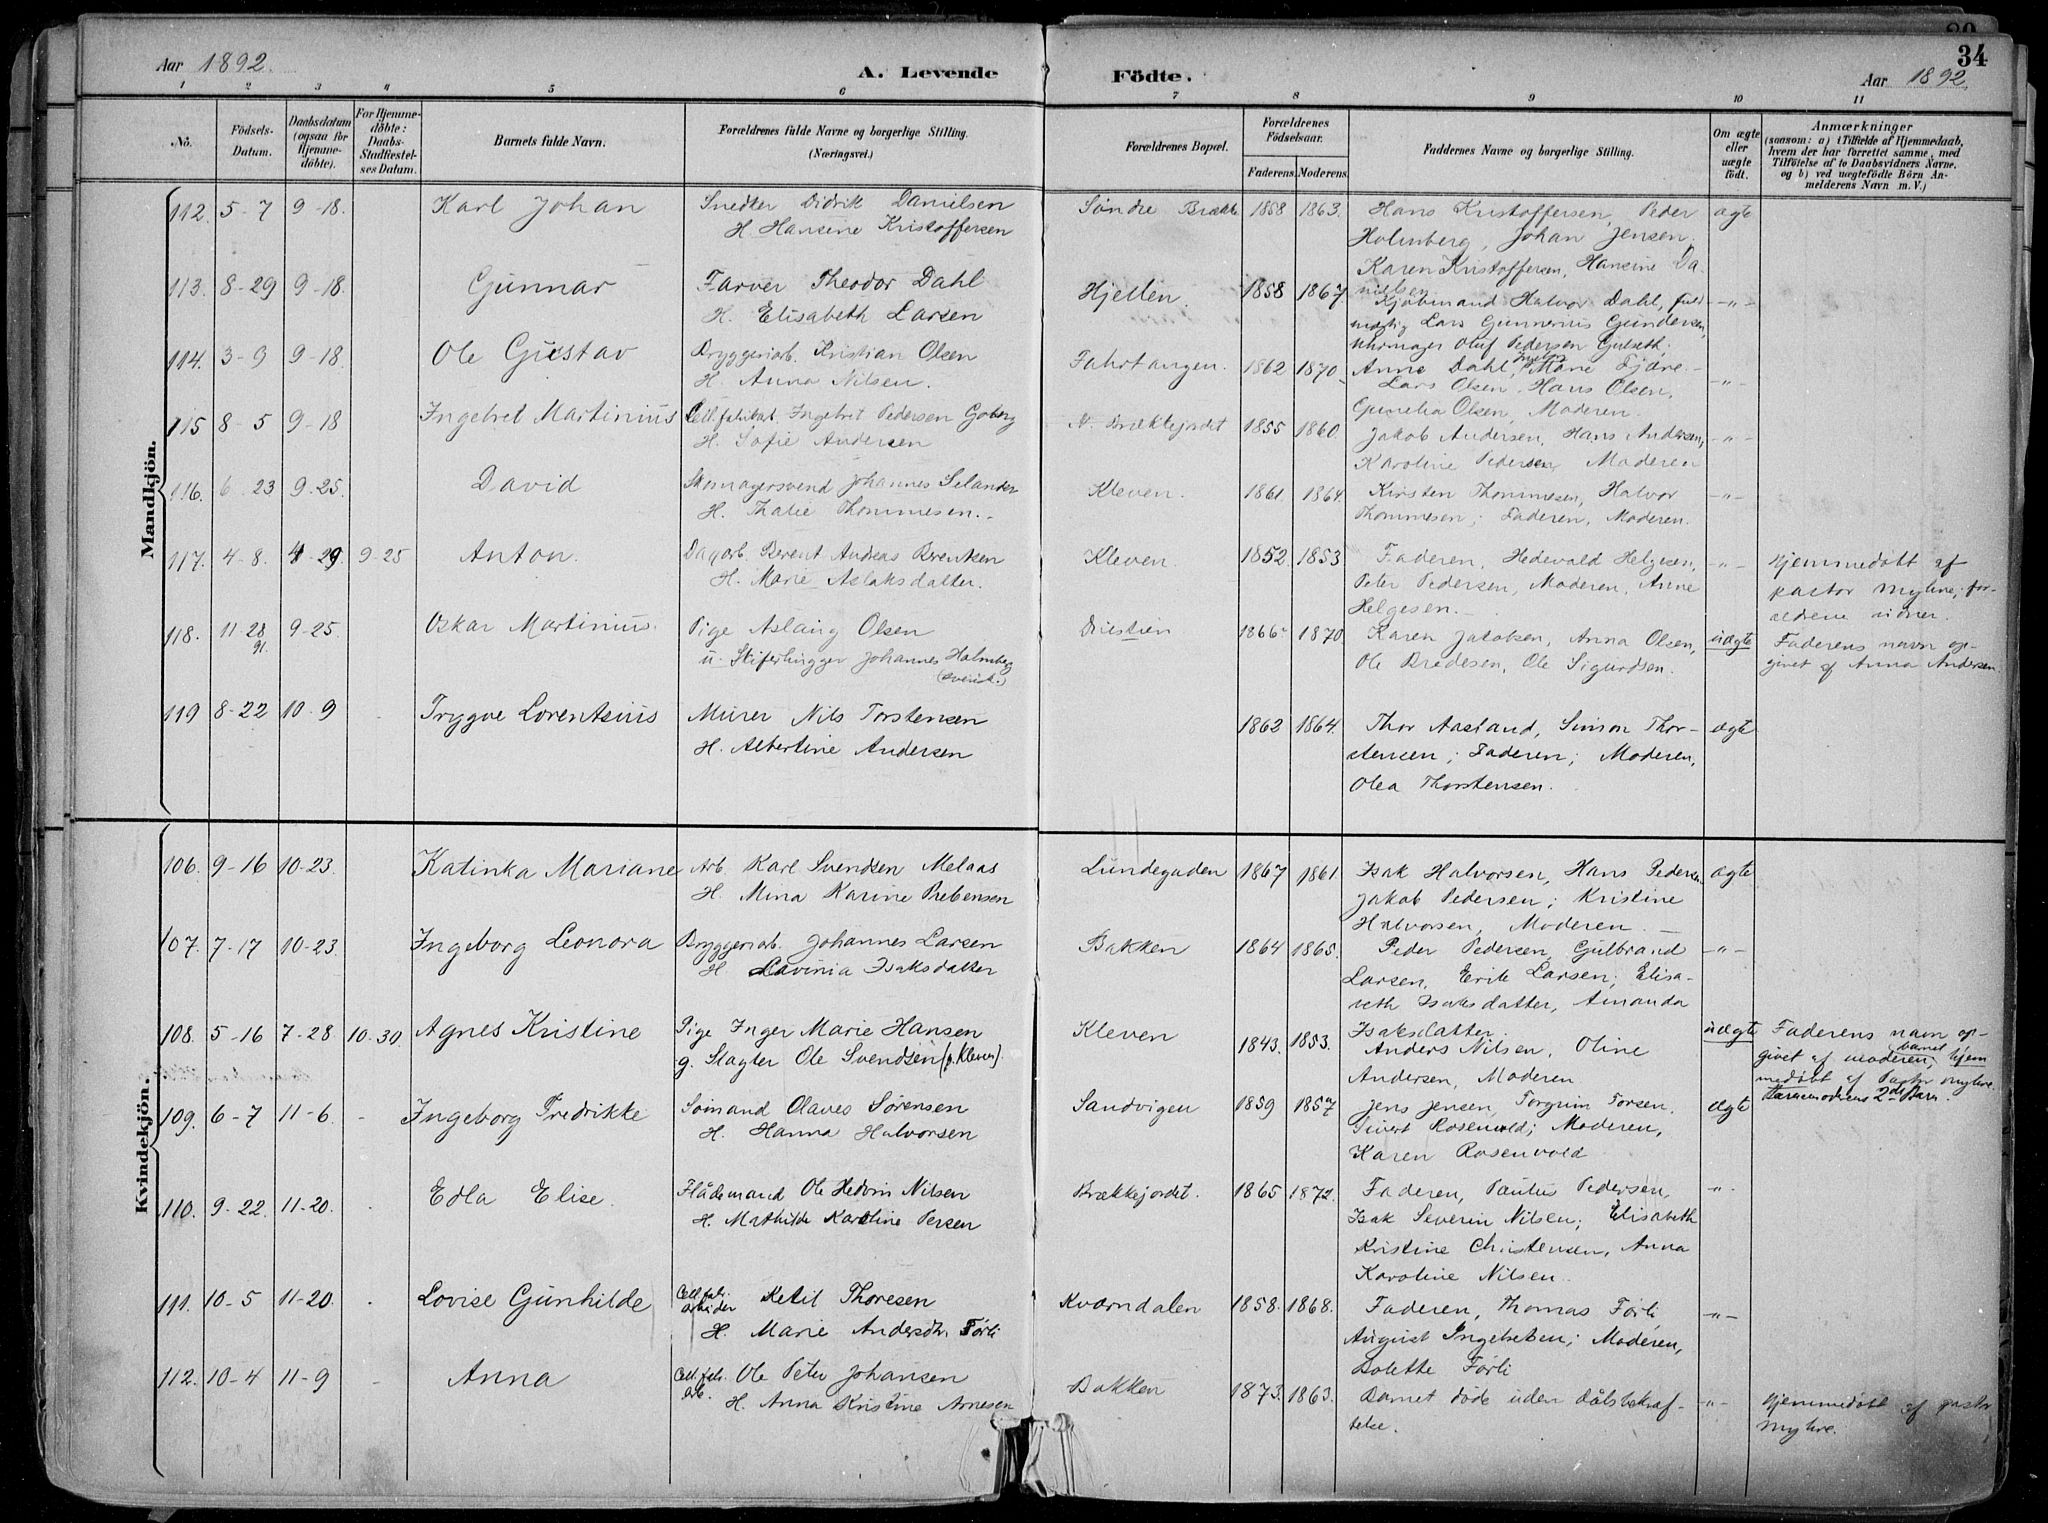 34
Aar 1892.
A. Levende
Födte.
Aar 1892.
1 2 3 4 5 6 7 8 9 10 11
No.
Födsels-Datum.
Daabsdatum (ogsaa for Hjemme-döbte).
For Hjemme-döbte: Daabs-Stadfæstel-ses Datum.
Barnets fulde Navn.
Forældrenes fulde Navne og borgerlige Stilling. (Næringsvei.)
Forældrenes Bopæl.
Forældrenes Födselsaar.
Faderens. Moderens.
Faddernes Navne og borgerlige Stilling.
Om ægte eller uægte födt.
Anmærkninger
(saasom: a) i Tilfælde af Hjemmedaab,
hvem der har forrettet samme, med
Tilföielse af to Daabsvidners Navne,
og b) ved uægtefödte Börn An-
melderens Navn m. V.)
Mandkjön.
112. 5-7 9-18. Karl Johan Snedker Didrik Danielsen Søndre Brække 1858 1863. Hans Kristoffersen, Peder ægte
H. Hansine Kristoffersen Holmberg, Johan Jensen,
Karen Kristoffersen, Hansine Da-
nielsen
113. 8-29 9-18. Gunnar Farver Theodor Dahl Hjellen. 1858 1867 Kjøbmand Halvor Dahl, fuld -"-
H. Elisabeth Larsen mægtig Lars Gunnerius Gundersen,
Uhrmager Oluf Pedersen Gulseth,
114. 3-9 9-18. Ole Gustav Bryggeriarb. Kristian Olsen Fahrtangen. 1862 1870 Anne Dahl, Marie Fjære -
H. Anna Nilsen. Lars Olsen, Hans Olsen, -"-
Gunelia Olsen, Moderen.
115 8-5 9-18 Ingebret Martinius Cell.fabrikat. Ingebret Pedersen Goberg N. Brækkejordet 1855 1860. Jakob Andersen, Hans Andersen, -"-
H. Sofie Andersen Karoline Pedersen, Moderen
116. 6-23 9-25. David Skomagersvend Johannes Selander Kleven. 1861. 1864. Kirsten Thommesen, Halvor -"-
H. Thalie Thommesen. Thommesen; Faderen, Moderen.
117. 4-8. 4-29 9-25 Anton. Dagarb. Berent Andreas Berentsen Kleven. 1852. 1853 Faderen, Hedevald Helgesen, -"- Hjemmedøbt af
H. Marie Aslaksdatter. Peter Pedersen, Moderen, Anne pastor Myhre; for-
Helgesen. ældrene vidner.
118. 11-28 91. 9-25. Oskar Martinius. Pige Aslaug Olsen 1866 1870 Karen Jakobsen, Anna Olsen, uægte Faderens navn op-
u. Stiferhugger Johannes Holmberg (svensk.) Ole Bredesen, Ole Sigurdsen. givet af Anna Andersen
119 8-22 10-9 Trygve Lorentsius Murer Nils Torstensen 1862 1864. Thor Aasland, Simon Thor- ægte
H. Albertine Andersen stensen; Faderen; Moderen,
Olea Thorstensen.
Kvindekjön.
106. 9-16 10-23. Katinka Mariane Arb. Karl Svendsen Melaas Lundegaden 1867 1861 Isak Halvorsen, Hans Pedersen ægte
H. Mina Karine Prebensen Jakob Pedersen; Kristine
Halvorsen, Moderen.
107. 7-17 10-23. Ingeborg Leonora Bryggeriab. Johannes Larsen Bakken 1864 1865. Peder Pedersen, Gulbrand -"-
H. Lavinia Isaksdatter Larsen, Erik Larsen; Elisa-
beth Isaksdatter, Amanda
Isaksdatter.
108. 5-16 7-28 10.30 Agnes Kristine Pige Inger Marie Hansen Kleven 1843. 1853. Anders Nilsen, Oline uægte Faderens navn op-
g. Slagter Ole Svendsen (p. Kleven). Andersen, Moderen givet af moderen, barnet hjem
medøbt af Pastor Myhre.
Barnemoderens 2det Barn.
109. 6-7 11-6 - Ingeborg Fredrikke Sømand Olaves Sørensen Sandvigen 1859 1857 Jens Jensen, Torgrim Torsen. ægte
H. Hanna Halvorsen Sivert Rosenvold; Moderen,
Karen Rosenvold
110. 9-22. 11-20. Edla Elise. Flådemand Ole Hedvin Nilsen Brækkejordet. 1865 1872. Faderen, Paulus Pedersen, -"-
H. Mathilde Karoline Persen Isak Severin Nilsen; Elisabeth
Kristine Christensen, Anna
Karoline Nilsen.
111. 10-5 11-20. Lovise Gunhilde Cell.fab. arbeider Ketil Thoresen Kværndalen 1858. 1868. Faderen, Thomas Førli -"-
H. Marie Andersdtr. Førli August Ingebretsen; Moderen,
Bolette Førli
112. 10-4 11-9 - Anna Cell.fab. arb. Ole Peter Johansen Bakken 1873. 1863. Barnet døde uden dåbsbekræf- -"- Hjemmedøbt af pastor
H. Anna Kristine Arnesen telse. Myhre.